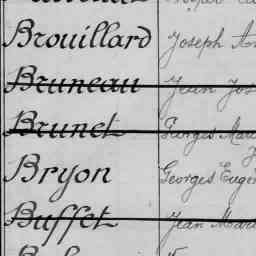 Brouillard Joseph
Bruneau Jean Jos
Brunet Georges Mari
Bryon Georges Eugèn
Buffet Jean Mari